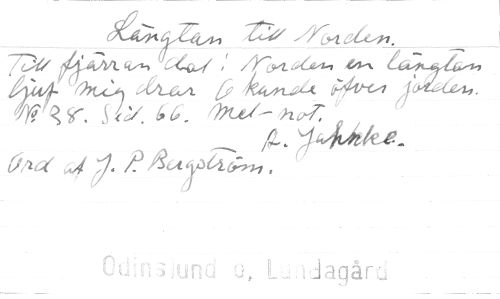 Längtan till Norden.
Till fjärran dal i Norden en längtan
ljuf mig drar kande öfver jorden.
No 38. Sid. 66. Met-not.
A. Jahnke.
Ord af J. P. Bergström.
Odinslund o, Lundagård